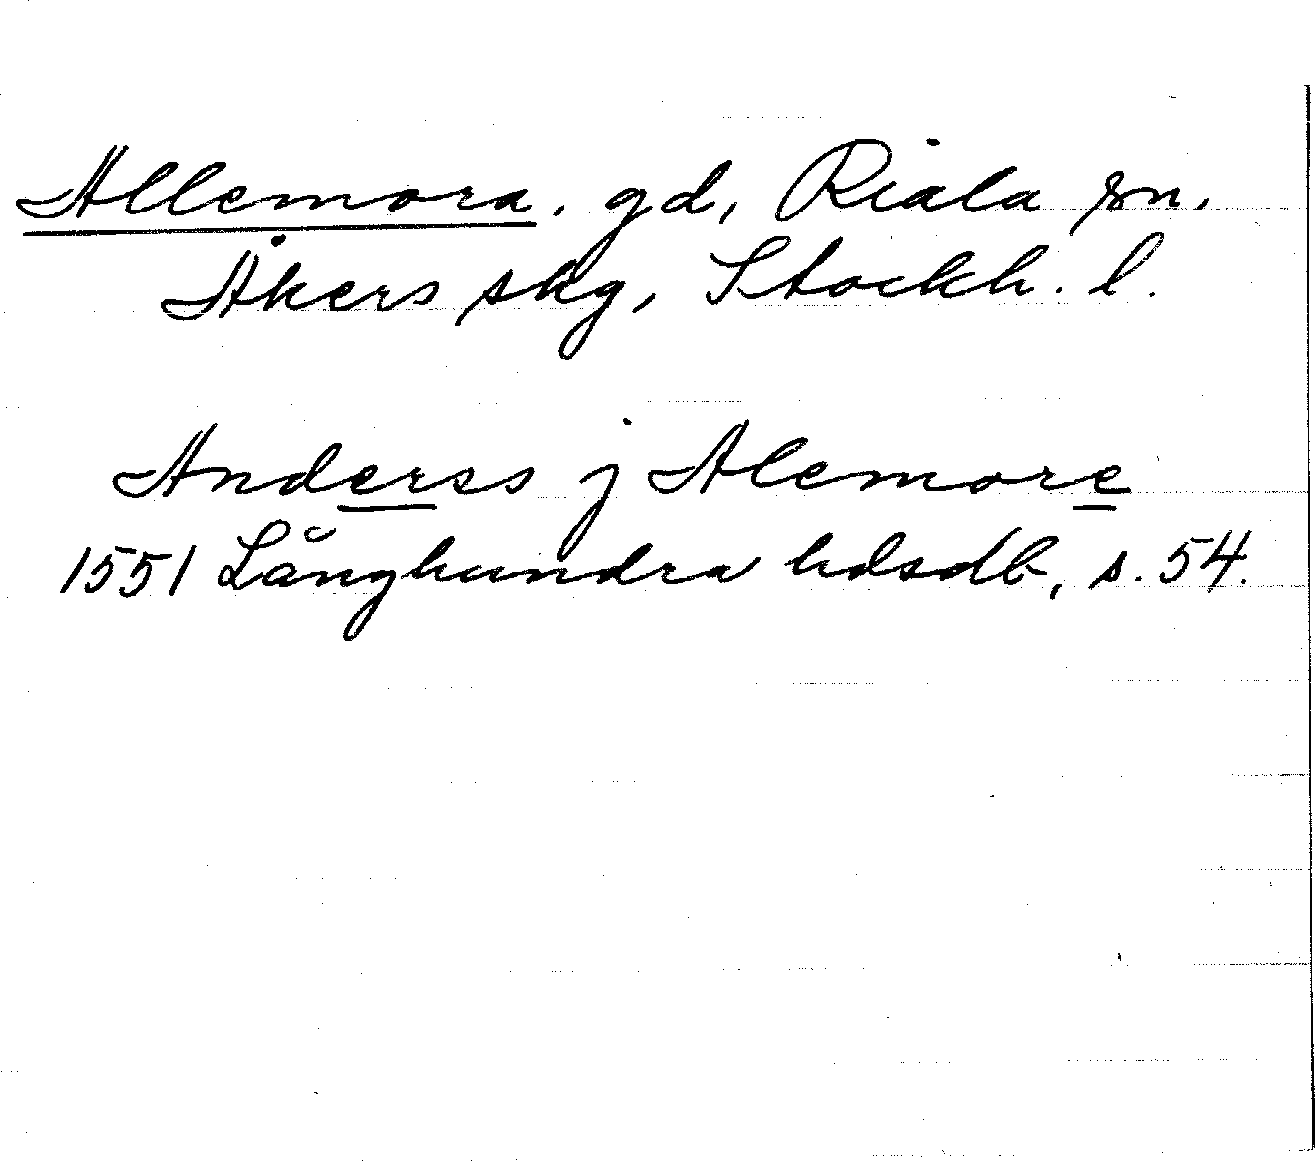 Allemora. gd, Riala sn.
Åkers skg, Stockh. l.
Anderss j Alemore
1551 Långhundra hdsdb, s. 54.